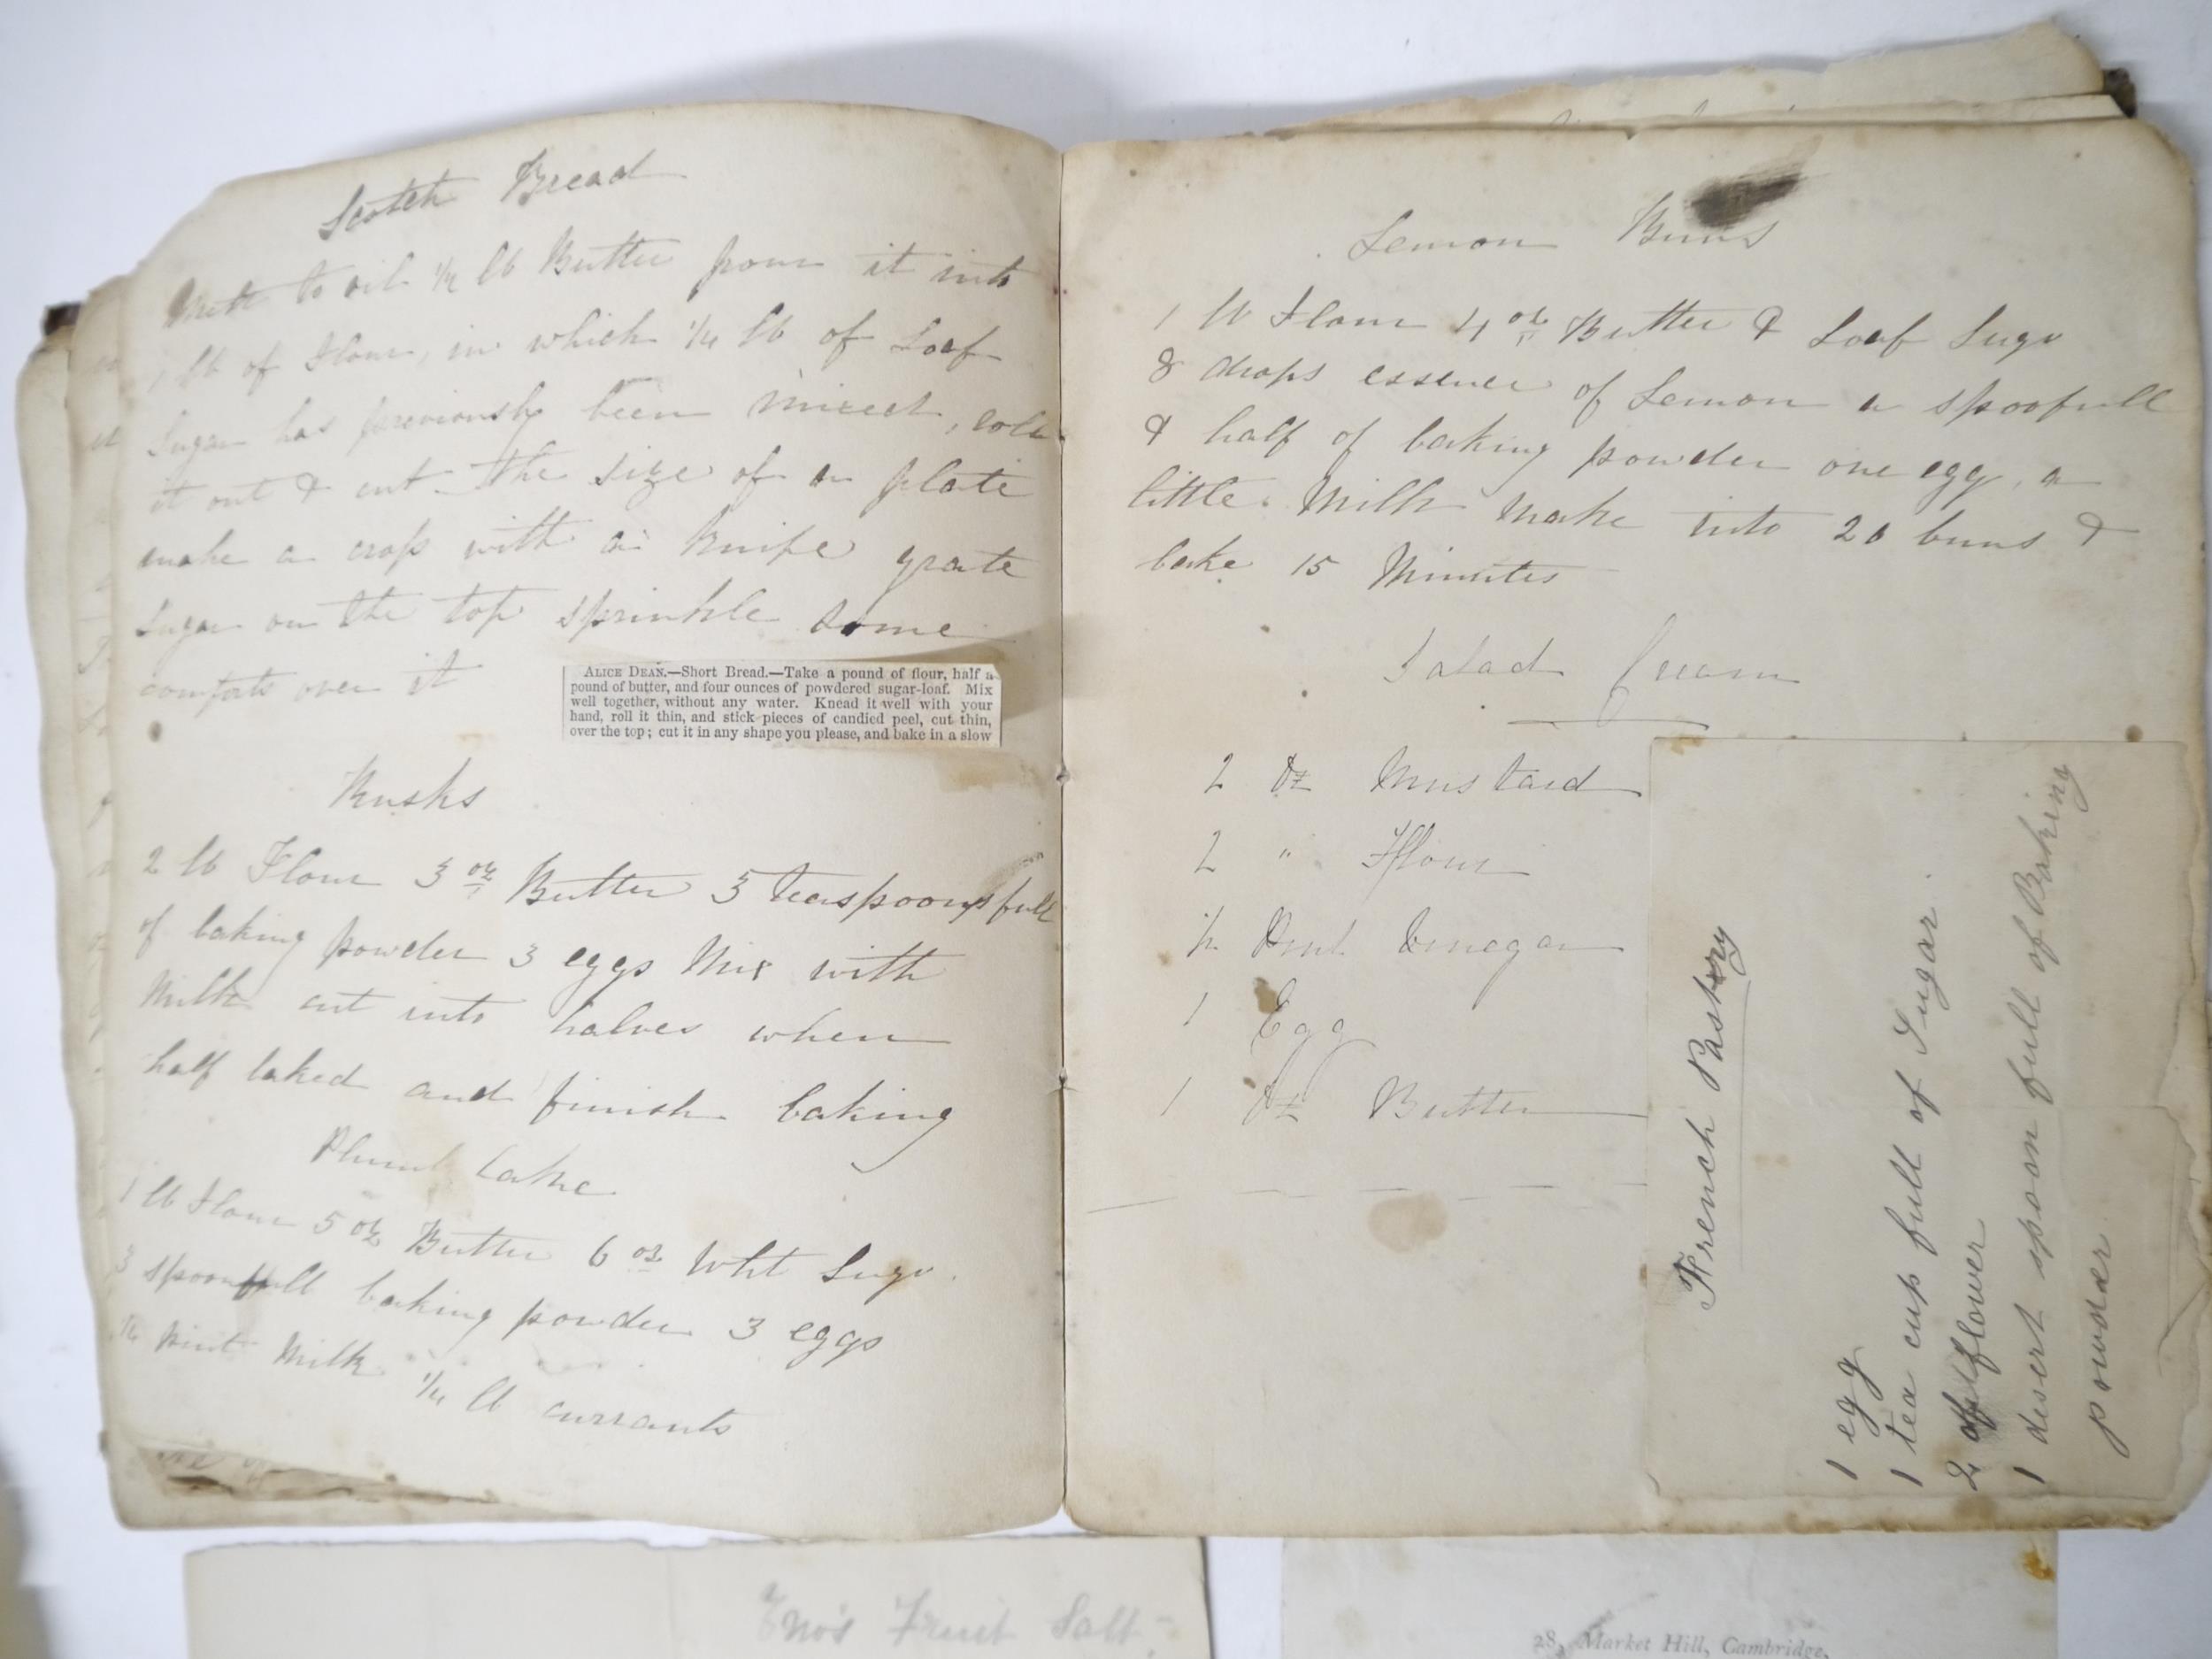 Scotch Bread
Melt to oil 1/2 lb Butter pour it into
1 lb of Flour, in which 1/4 lb of Loaf
Sugar has previously been mixed, roll
it out & cut the size of a plate
make a cross with a knife grate
Sugar on the top sprinkle some
comfits over it
ALICE DEAN.—Short Bread.—Take a pound of flour, half a
pound of butter, and four ounces of powdered sugar-loaf. Mix
well together, without any water. Knead it well with your
hand, roll it thin, and stick pieces of candied peel, cut thin,
over the top; cut it in any shape you please, and bake in a slow
Rusks
2 lb Flour 3 oz Butter 3 teaspoonsfull
of baking powder 3 eggs Mix with
Milk cut into halves when
half baked and finish baking
Plumb Cake
1 lb Flour 5 oz Butter 6 oz Wht Sugr.
3 spoonfull baking powder 3 eggs
pint Milk 1/4 lb currants
Lemon Buns
1 lb Flour 4 oz Butter & Loaf Sugr
8 drops essence of Lemon a spoofull
& half of baking powder one egg, a
little Milk make into 20 buns &
bake 15 Minutes
Salad Cream
2 oz Mustard
2 " Flour
1/2 Pint Vinegar
1 Egg
1 oz Butter
French Pastry
1 egg
1 tea cup full of Sugar.
2 of flower
1 desert spoon full of Baking
powder.
Eno's Fruit Salt
28, Market Hill, Cambridge,